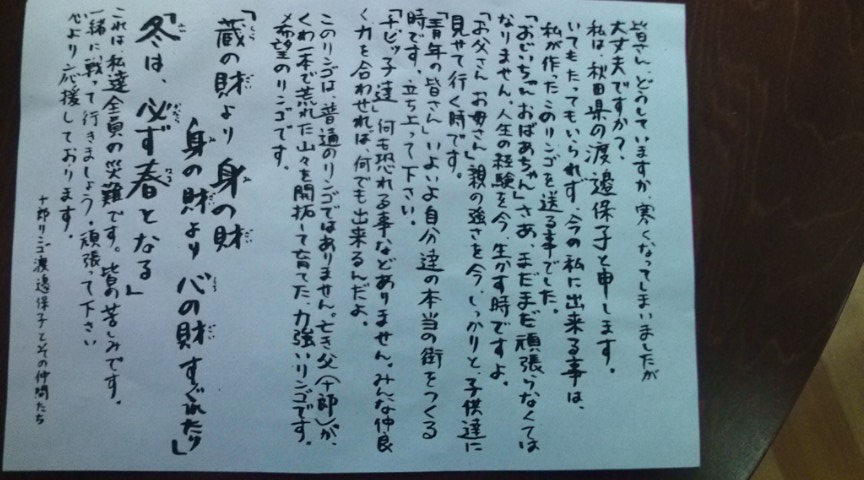 皆さん、どうしていますか、寒くなってしまいましたが
大丈夫ですか？
私は、秋田県の渡邉保子と申します。
いてもたってもいられず、今の私に出来る事は、
私が作ったこのリンゴを送る事でした。
「おじいちゃん、おばあちゃん」さあ、まだまだ頑張らなくては
なりません。人生の経験を今、生かす時ですよ。
「お父さん、お母さん」親の強さを今、しっかりと、子供達に
見せて行く時です。
「青年の皆さん」いよいよ自分達の本当の街をつくる
時です。立ち上って下さい。
「チビッ子達」何も恐れる事などありません。みんな仲良
く力を合わせれば、何でも出来るんだよ。
このリンゴは、普通のリンゴではありません。亡き父（十郎）が、
くわ一本で荒れた山々を開拓して育てた、力強いリンゴです。
希望のリンゴです。
「蔵の財より身の財
身の財より心の財すぐれたり」
「冬は、必ず春となる」
これは私達全員の災難です。皆の苦しみです。
一緒に戦って行きましょう。頑張って下さい
心より応援しております。
十郎リンゴ渡邉保子とその仲間たち